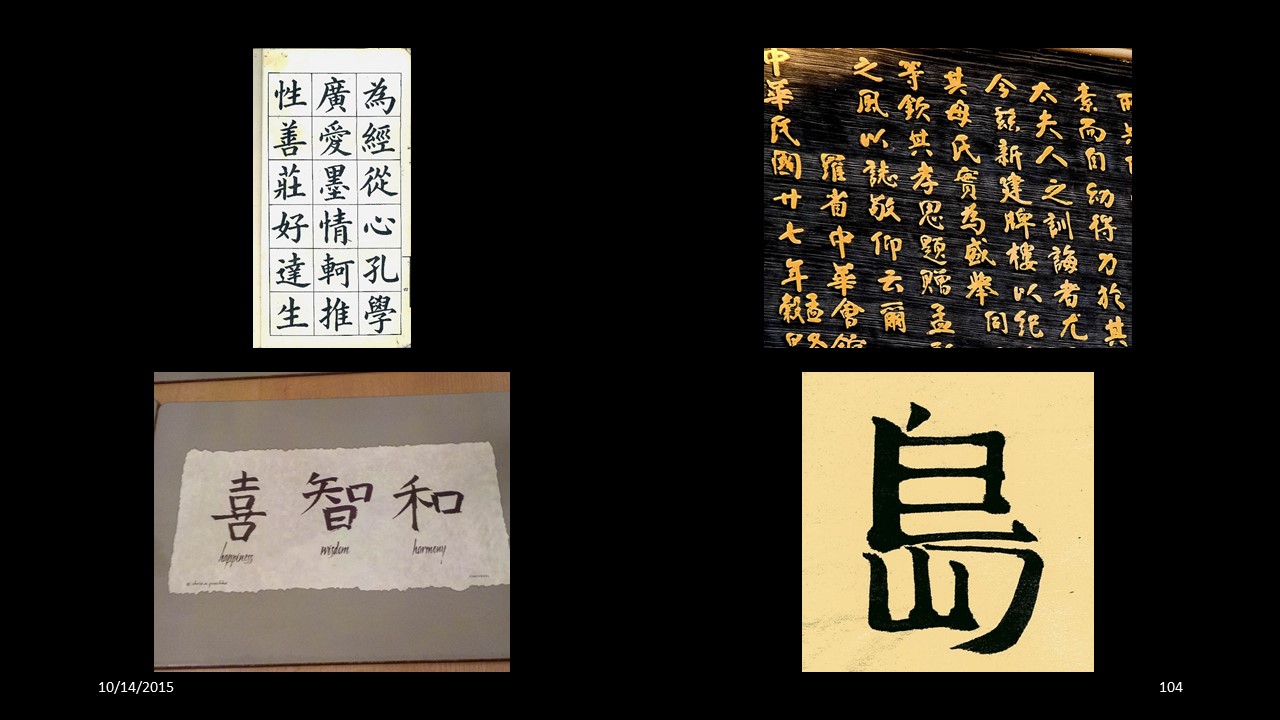 為經從心孔學
廣愛墨情軻推
性善莊好達生
素而自幼得力於其
太夫人之訓誨者尤
今茲新建牌樓以紀
其母氏實為盛舉同
等欽其孝思題贈孟
之風以誌敬仰云爾
羅省中華會館
中華民國廿七年穀
喜 智 和
happiness wisdom harmony
島
10/14/2015
104